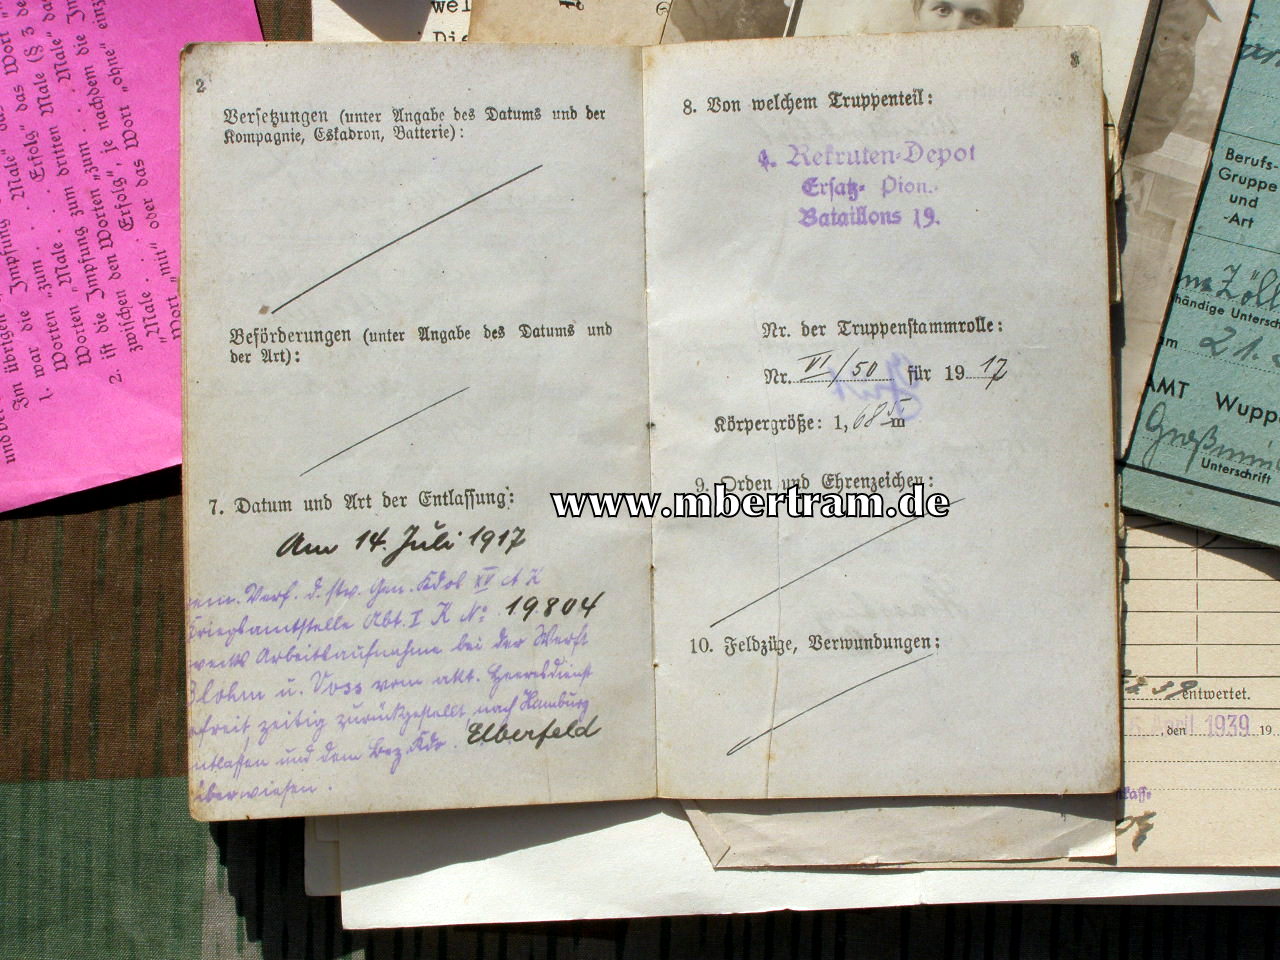 2
Versetzungen (unter Angabe des Datums und der
Kompagnie, Eskadron, Batterie):
Beförderungen (unter Angabe des Datums und
der Art):
7. Datum und Art der Entlassung:
Am 14. Juli 1917
gem. Verf. d. stv. Gen. Kdos XV A K
Kriegsamtstelle Abt. I K No 19804
zwecks Arbeitsaufnahme bei der Werft
Blohm u. Voss vom akt. Heeresdienst
zeitig zurückgestellt, nach Hamburg
entlassen und dem Bez. Kdo. Elberfeld
überwiesen.
8. Von welchem Truppenteil:
Rekruten-Depot
Ersatz- Pion.-
Bataillons 19.
Nr. der Truppenstammrolle:
Nr. VI/50 für 1917
Körpergröße: 1,68 5 m
9. Orden und Ehrenzeichen:
10. Feldzüge, Verwundungen:
www.mbertram.de
Im übrigen
1. war die Impfung
Worten "zum
Worten "Male
2. ist die Impfung zum dritten Male (§ 3
zwischen den Worten "zum
"Male . . Erfolg", je nachdem die
Wort "mit" oder das Wort "ohne"
wel
Die
Berufs-
Gruppe
und
-Art
händige Untersch
21.
AMT Wupp
Unterschrift
entwertet.
April 1939
, den
19